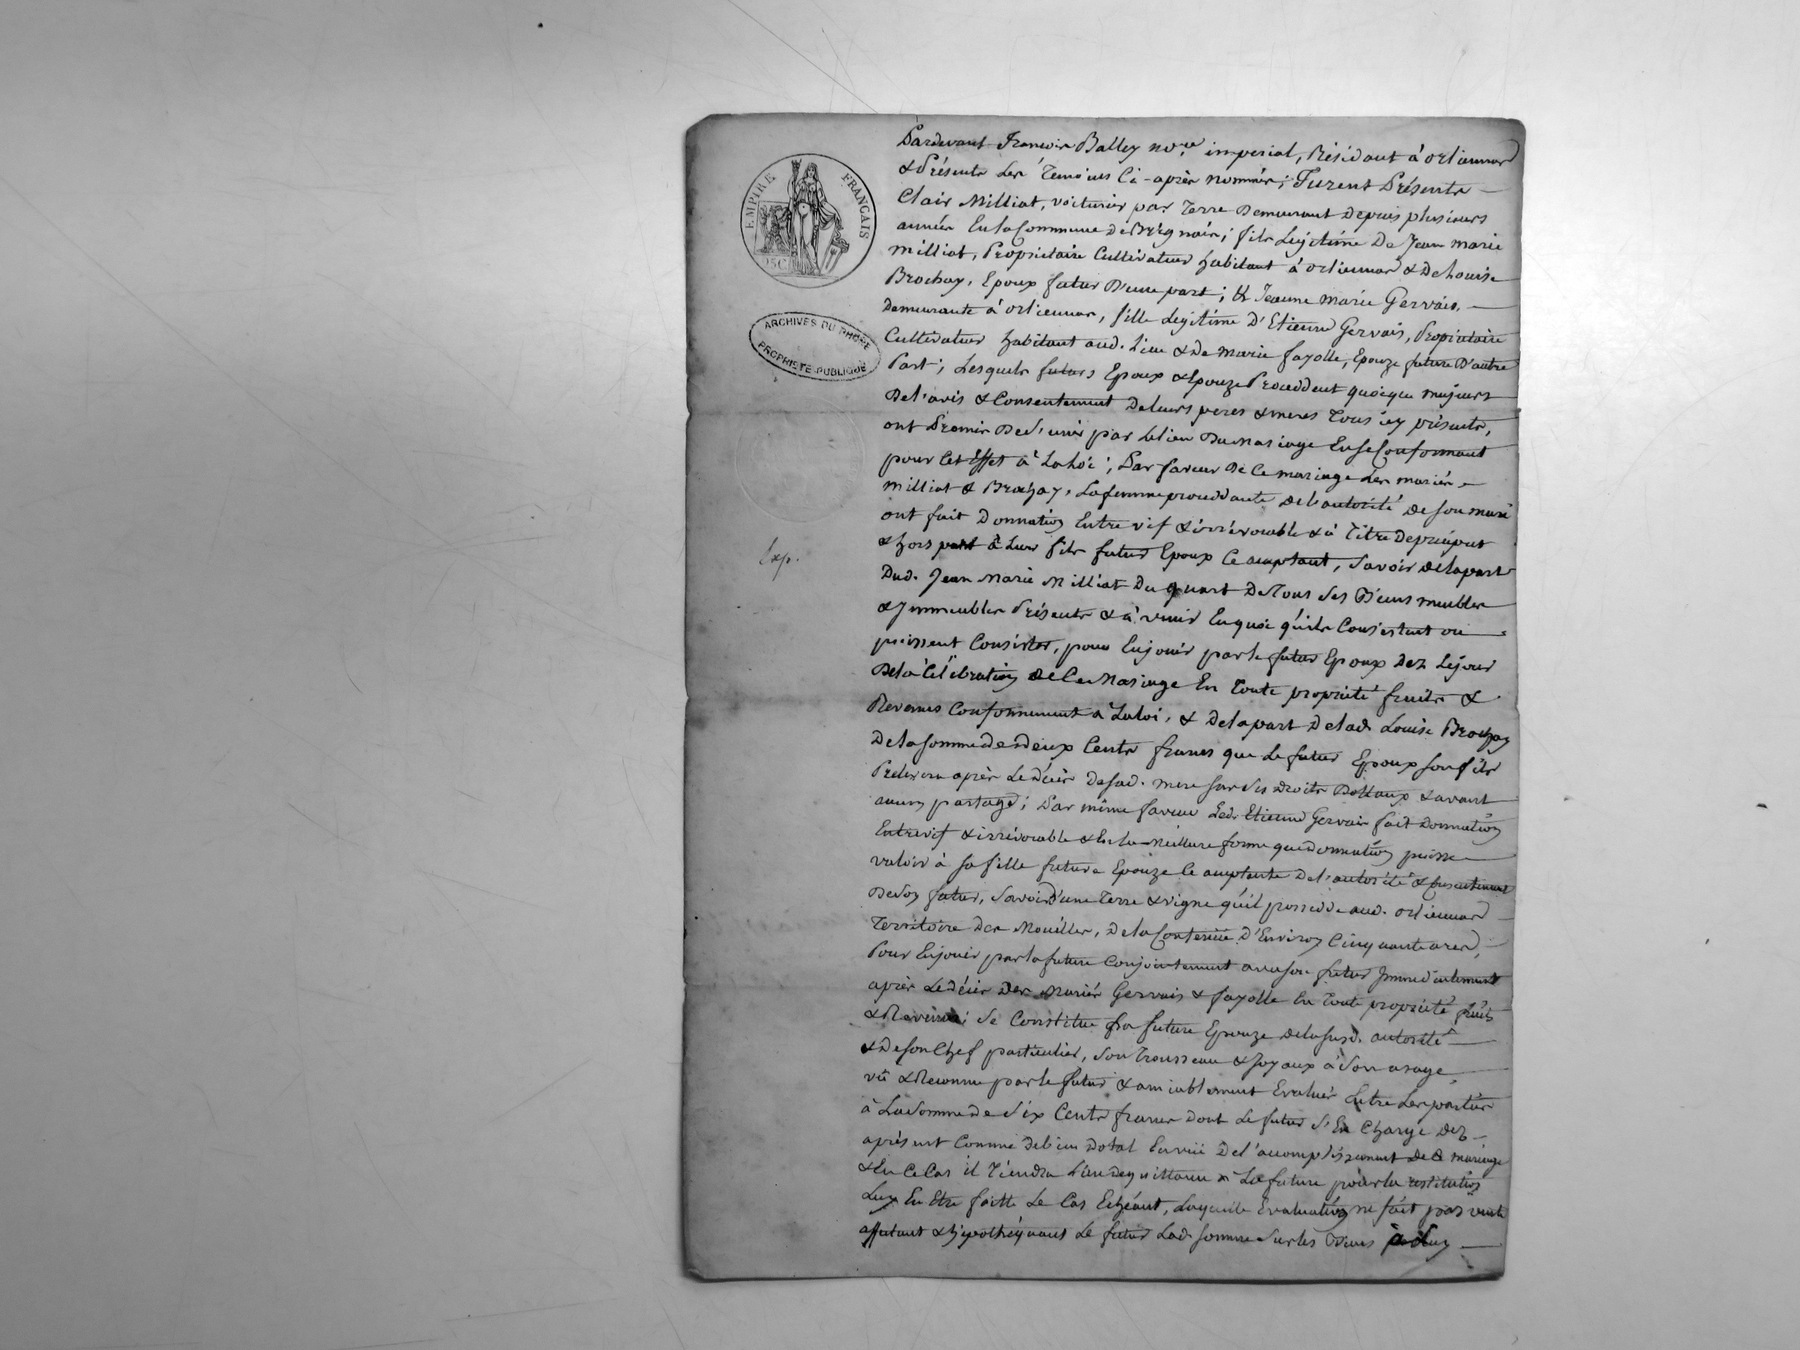 Pardevant François Balley no.re imperial, Résidant à orlienas
& Présents Les Temoins Ci-après nommés; Furent Présents
Clair Milliat, voiturier par Terre Demeurant Depuis plusieurs
années En la Commune de Brignais; fils Legitime De Jean marie
milliat, Propriétaire Cultivateur habitant à orlienas & De Louise
Brochay, Epoux futur D'une part; & Jeanne Marie Gervais,
Demeurante à orlienas, fille Legitime D'Etienne Gervais, Propriétaire
Cultivateur habitant aud. Lieu & De Marie fayolle, Epouze future D'autre
Part; Lesquels futurs Epoux & Epouze Procèddent quoique majeurs
De l'avis & Consentement De leurs peres & meres Tous icy présents,
ont Promis De S'unir par Le lien Du Mariage En Se Conformant
pour Cet Effet à La loi; Par faveur De Ce mariage Les mariés
Milliat & Brochay, La femme proceddante De L'autorité De Son mari
ont fait Donnation Entre vif & irrévocable & à Titre De préciput
& hors part à Leur fils futur Epoux Ce acceptant, Savoir De la part
Dud. Jean Marie Milliat Du quart De Tous Ses Biens meubles
& Immeubles Présents & à venir En quoi qu'ils Consistent ou
puissent Consister, pour En jouir par le futur Epoux Dez Le jour
De la Célébration De Ce Mariage En Toute propriété fruits &
Revenus Conformement à La loi, & De la part De lad. Louise Brochay
De la Somme de deux Cents francs que Le futur Epoux Son fils
Prelevera après Le Décès De Sad. mere Sur Ses Droits Dottaux & avant
aucun partage; Par même faveur Led. Etienne Gervais fait Donnation
Entre vif & irrévocable & En La Meilleure forme que Donnation puisse
valoir à Sa fille future Epouze Ce acceptante De L'autorité & Consentement
De Son futur, Savoir D'une Terre & vigne qu'il possedde aud. orlienas
Territoire Des Mouilles, De la Contenue D'Environ Cinquante ares,
Pour En jouir par la future Conjointement avec Son futur Immédiatement
après Le Décès Des Mariés Gervais & fayolle En Toute propriété fruits
& Revenus; Se Constitue La future Epouze De la Susd. autorité
& De Son Chef particulier, Son Trousseau & Joyaux à Son usage,
vû & Reconnu par le futur & amiablement Evalués Entre Les parties
à La Somme de Six Cents francs Dont Le futur S'En Charge Dez
aprésent Comme De bien Dotal En vüe De l'accomplissement de mariage
& En Ce Cas il Tiendra Lieu De quittance à La future pour La restitution
Luy En Etre faitte Le Cas Echéant, Laquelle Evaluation ne fait pas vente
affectant & hypothéquant Le futur Lad. Somme Sur les Biens
EMPIRE FRANÇAIS
ARCHIVES DU RHÔNE
PROPRIÉTÉ PUBLIQUE
Exp.